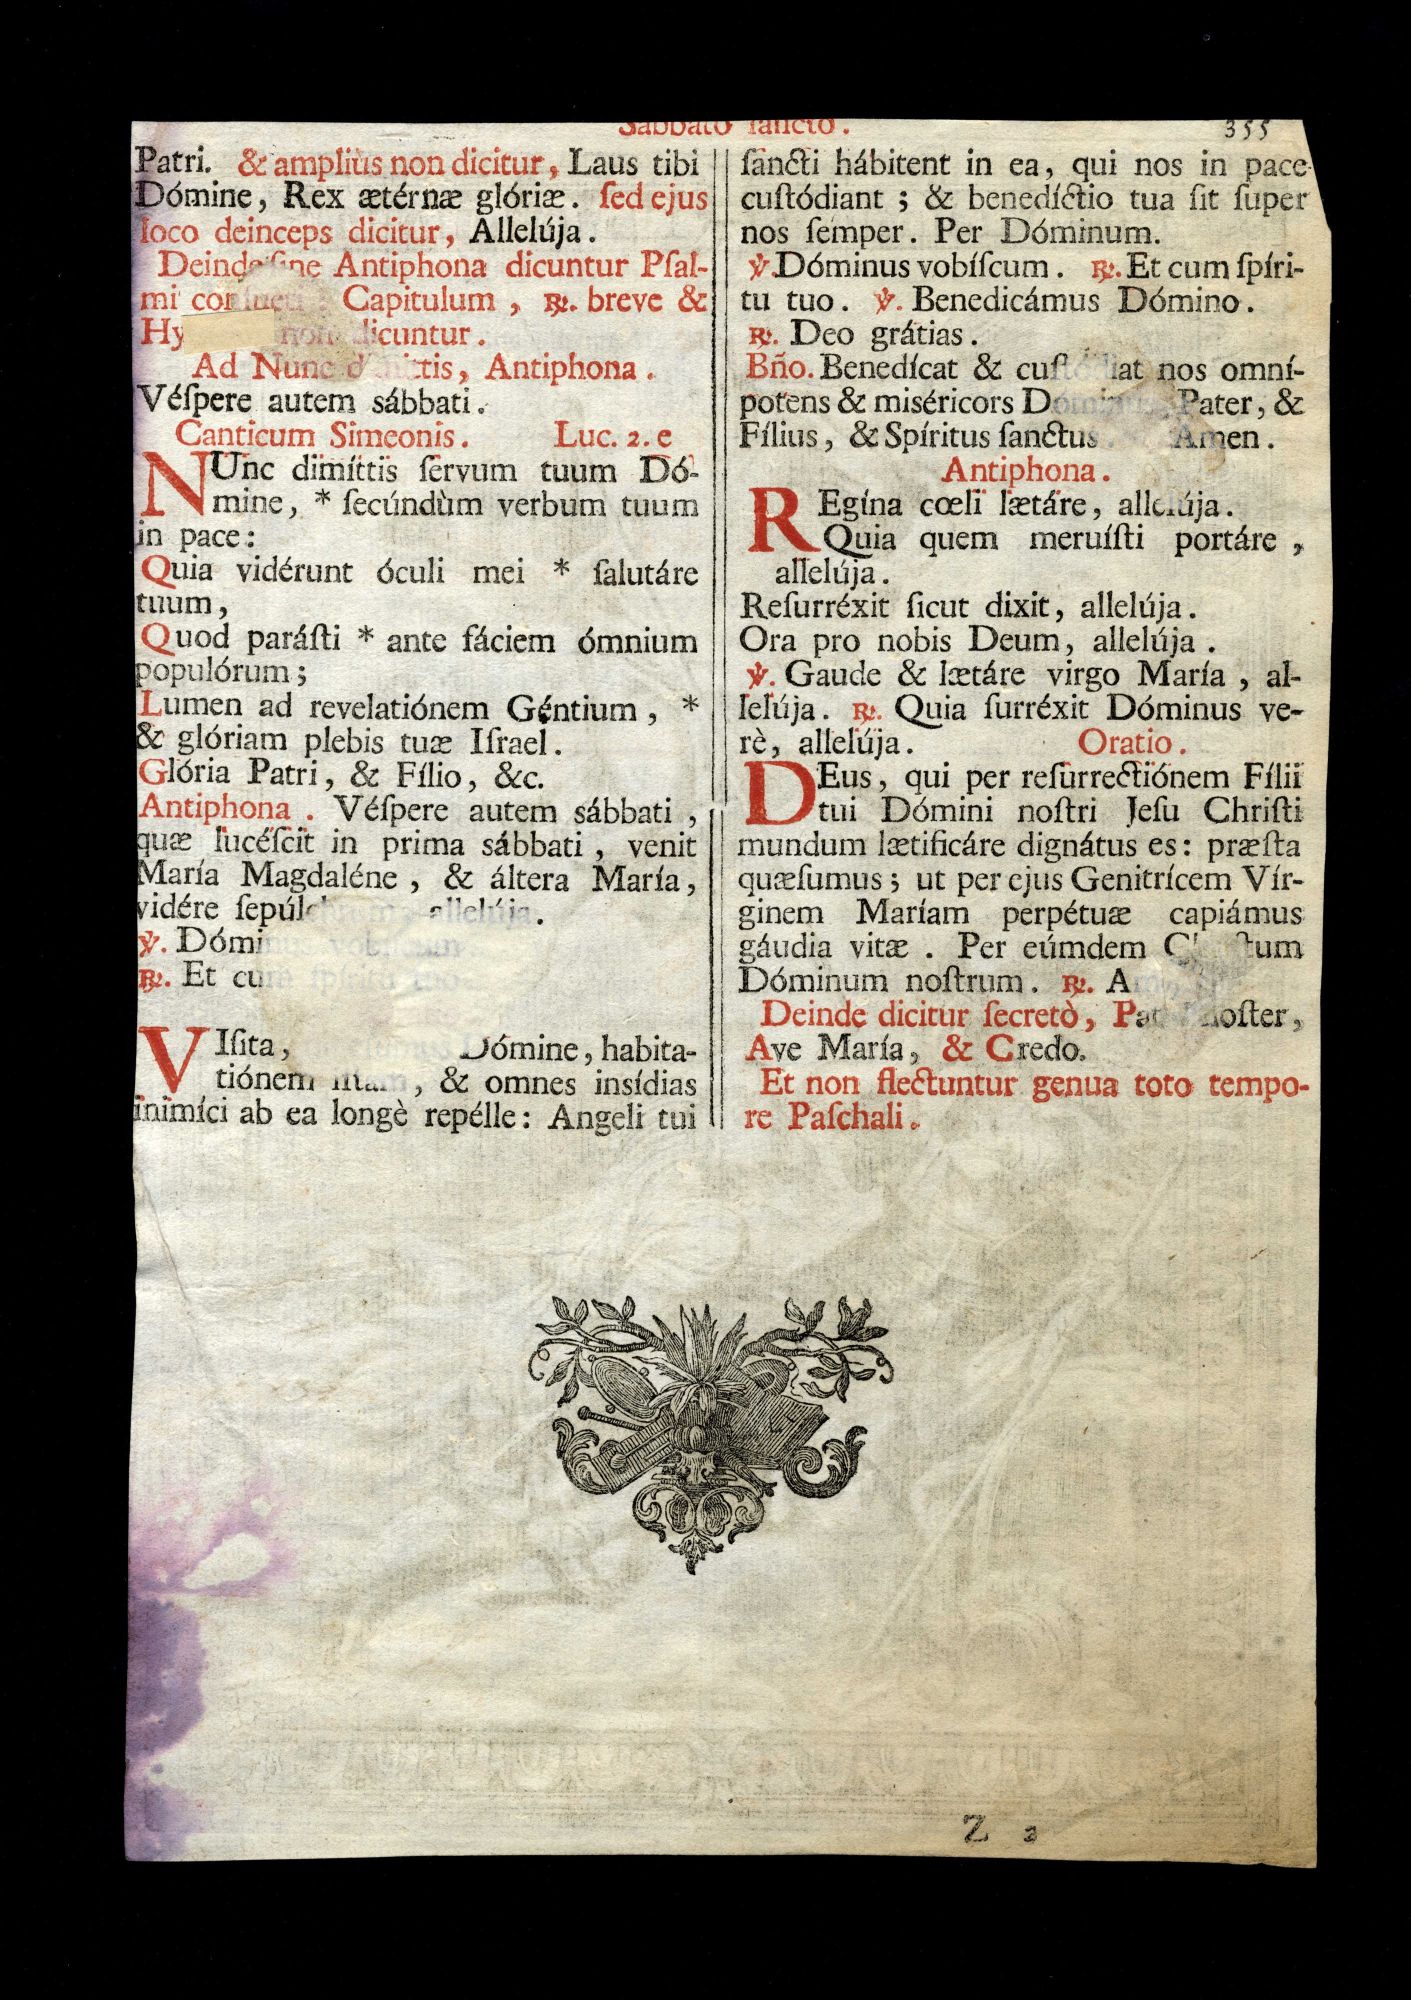 Sabbato ſancto.
355
Patri. & ampliùs non dicitur, Laus tibi
Dómine, Rex ætérnæ glóriæ. ſed ejus
loco deinceps dicitur, Allelúja.
Deinde ſine Antiphona dicuntur Pſal-
mi conſueti: Capitulum, ℟. breve &
non dicuntur.
Ad Nunc dimittis, Antiphona.
Véſpere autem sábbati.
Canticum Simeonis. Luc. 2. e
NUnc dimíttis ſervum tuum Dó-
mine, * ſecúndùm verbum tuum
in pace:
Quia vidérunt óculi mei * ſalutáre
tuum,
Quod paráſti * ante fáciem ómnium
populórum;
Lumen ad revelatiónem Géntium, *
& glóriam plebis tuæ Iſrael.
Glória Patri, & Fílio, &c.
Antiphona. Véſpere autem sábbati,
quæ lucéſcit in prima sábbati, venit
María Magdaléne, & áltera María,
vidére ſepúlchrum, allelúja.
℣. Dóminus vobíſcum
℟. Et cum ſpíritu tuo
VIſita, Dómine, habita-
tiónem iſtam, & omnes insídias
inimíci ab ea longè repélle: Angeli tui
ſancti hábitent in ea, qui nos in pace
cuſtódiant; & benedíctio tua ſit ſuper
nos ſemper. Per Dóminum.
℣. Dóminus vobíſcum. ℟. Et cum ſpíri-
tu tuo. ℣. Benedicámus Dómino.
℟. Deo grátias.
Bño. Benedícat & cuſtódiat nos omní-
potens & miséricors Dóminus, Pater, &
Fílius, & Spíritus ſanctus. Amen.
Antiphona.
REgína cœli lætáre, allelúja.
Quia quem meruíſti portáre,
allelúja.
Reſurréxit ſicut dixit, allelúja.
Ora pro nobis Deum, allelúja.
℣. Gaude & lætáre virgo María, al-
lelúja. ℟. Quia ſurréxit Dóminus ve-
rè, allelúja. Oratio.
DEus, qui per reſurrectiónem Fílii
tui Dómini noſtri Jeſu Chriſti
mundum lætificáre dignátus es: præſta
quæſumus; ut per ejus Genitrícem Vír-
ginem Maríam perpétuæ capiámus
gáudia vitæ. Per eúmdem Chriſtum
Dóminum noſtrum. ℟. Amen.
Deinde dicitur ſecretò, Pater noſter,
Ave María, & Credo.
Et non flectuntur genua toto tempo-
re Paſchali.
Z 2